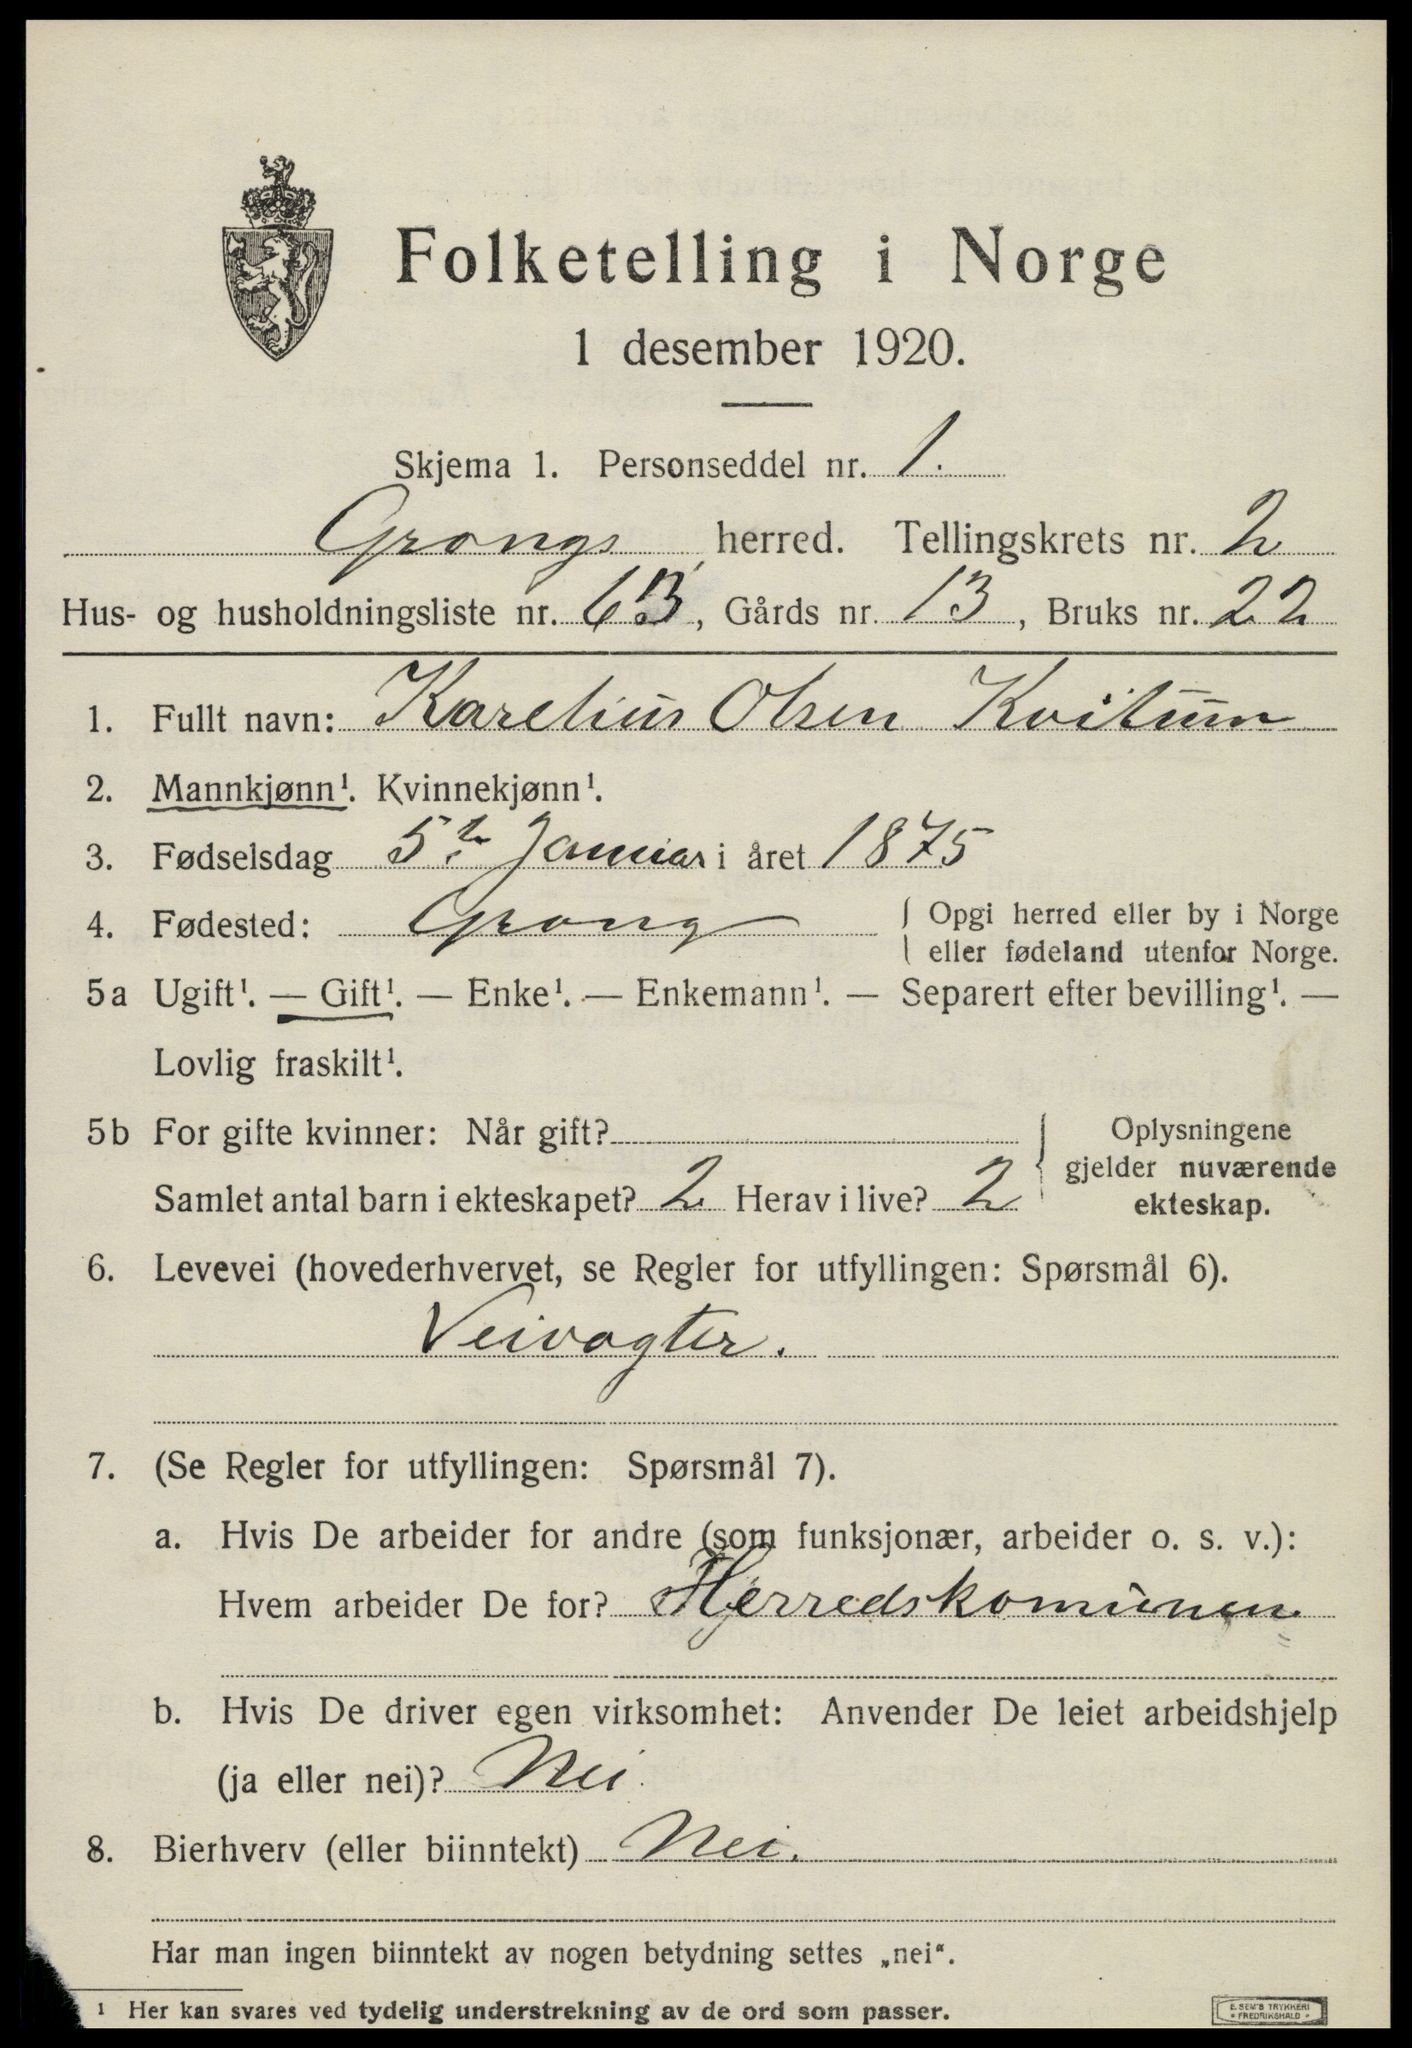 Folketelling i Norge
1 desember 1920.
Skjema 1. Personseddel nr. 1.
Grongs herred. Tellingskrets nr. 2
Hus- og husholdningsliste nr. 63, Gårds nr. 13, Bruks nr. 22
1. Fullt navn: Karelius Olsen Kvitum
2. Mannkjønn¹. Kvinnekjønn¹.
3. Fødselsdag 5te Januar i året 1875
4. Fødested: Grong { Opgi herred eller by i Norge
eller fødeland utenfor Norge.
5a Ugift¹. — Gift¹. — Enke¹. — Enkemann¹. — Separert efter bevilling¹. —
Lovlig fraskilt¹.
5b For gifte kvinner: Når gift? { Oplysningene
gjelder nuværende
Samlet antal barn i ekteskapet? 2 Herav i live? 2 ekteskap.
6. Levevei (hovederhvervet, se Regler for utfyllingen: Spørsmål 6).
Veivogter.
7. (Se Regler for utfyllingen: Spørsmål 7).
a. Hvis De arbeider for andre (som funksjonær, arbeider o. s. v.):
Hvem arbeider De for? Herredskomunen
b. Hvis De driver egen virksomhet: Anvender De leiet arbeidshjelp
(ja eller nei)? Nei.
8. Bierhverv (eller biinntekt) Nei.
Har man ingen biinntekt av nogen betydning settes „nei“.
¹ Her kan svares ved tydelig understrekning av de ord som passer.
E. SEM'S TRYKKERI
FREDRIKSHALD